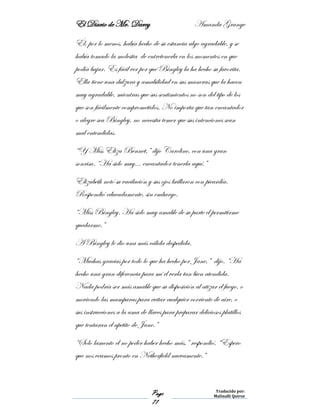 El Diario de Mr. Darcy Amanda Grange
Él, por lo menos, había hecho de su estancia algo agradable, y se
había tomado la molestia de entretenerla en los momentos en que
podía bajar. Es fácil ver por qué Bingley la ha hecho su favorita.
Ella tiene una dulzura y amabilidad en sus maneras que la hacen
muy agradable, mientras que sus sentimientos no son del tipo de los
que son fácilmente comprometidos. No importa que tan encantador
o alegre sea Bingley, no necesita temer que sus intenciones sean
mal entendidas.
“Y Miss Eliza Bennet,” dijo Caroline, con una gran
sonrisa. “Ha sido muy… encantador tenerla aquí.”
Elizabeth notó su vacilación y sus ojos brillaron con picardía.
Respondió educadamente, sin embargo.
“Miss Bingley. Ha sido muy amable de su parte el permitirme
quedarme.”
A Bingley le dio una más cálida despedida.
“Muchas gracias por todo lo que ha hecho por Jane,” dijo. “Ha
hecho una gran diferencia para mí el verla tan bien atendida.
Nada podría ser más amable que su disposición al atizar el fuego, o
moviendo las mamparas para evitar cualquier corriente de aire, o
sus instrucciones a la ama de llaves para preparar deliciosos platillos
que tentaran el apetito de Jane.”
“Solo lamento el no poder haber hecho más,” respondió. “Espero
que nos veamos pronto en Netherfield nuevamente.”
Page
77
Traducido por:
Malinalli Quiroz